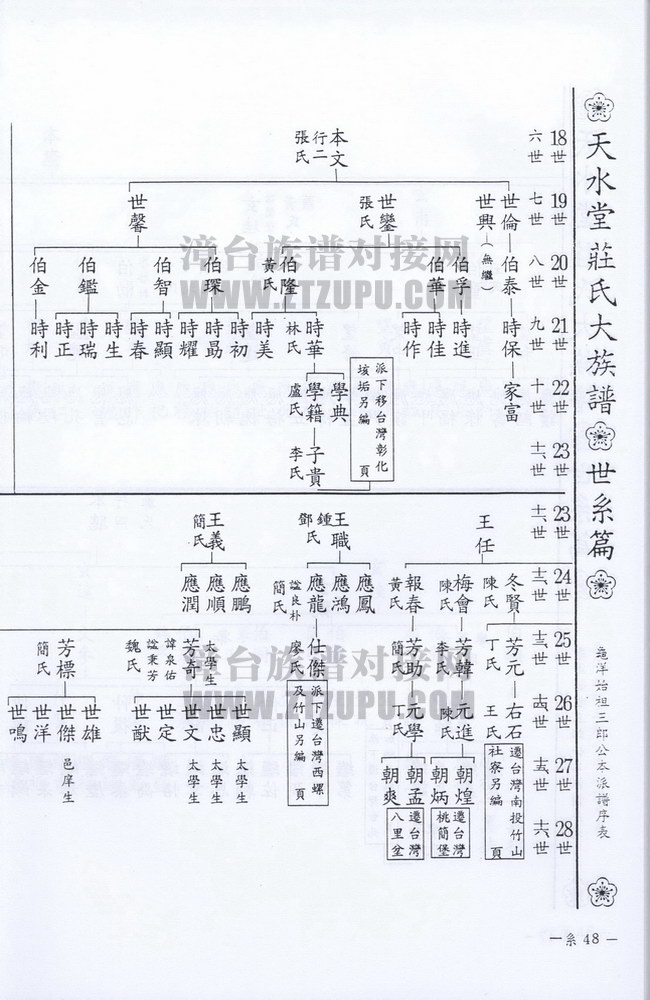 天水堂莊氏大族譜
世系篇
龜洋始祖三郎公本派譜序表
一系 48 —
18世 六世
19世 七世
20世 八世
21世 九世
22世 十世
23世 十一世
本文 行二 張氏
世倫 世興（無繼） 世鑾 張氏 世馨
伯泰 伯孚 伯華 伯隆 黃氏 伯琛 伯智 伯鑑 伯金
時保 時進 時佳 時作 時華 林氏 時美 時初 時勗 時耀 時顯 時春 時生 時瑞 時正 時利
家富 學典 學籍 盧氏
子貴 李氏
派下移台灣彰化
垓垢另編 頁
23世
24世
25世
26世
27世
28世
王任 王職 鍾氏 鄧氏 王義 簡氏
冬賢 陳氏 梅會 陳氏 報春 黃氏 應鳳 應鴻 應龍 諡良朴 簡氏 應鵬 應順 應潤
芳元 丁氏 芳韓 李氏 芳助 簡氏 仕傑 廖氏 太學生 芳奇 諱泉佑 諡秉芳 魏氏 芳標 簡氏
右石 王氏 元進 陳氏 元學 丁氏 世顯 太學生 世忠 太學生 世文 太學生 世定 世猷 世雄 世傑 邑庠生 世洋 世鳴
朝煌 朝炳 朝孟 朝爽
遷台灣南投竹山
社寮另編 頁
遷台灣
桃簡堡
遷台灣
八里坌
派下遷台灣西螺
及竹山另編 頁
漳台族谱对接网
WWW.ZTZUPU.COM
漳台族谱对接网
WWW.ZTZUPU.COM